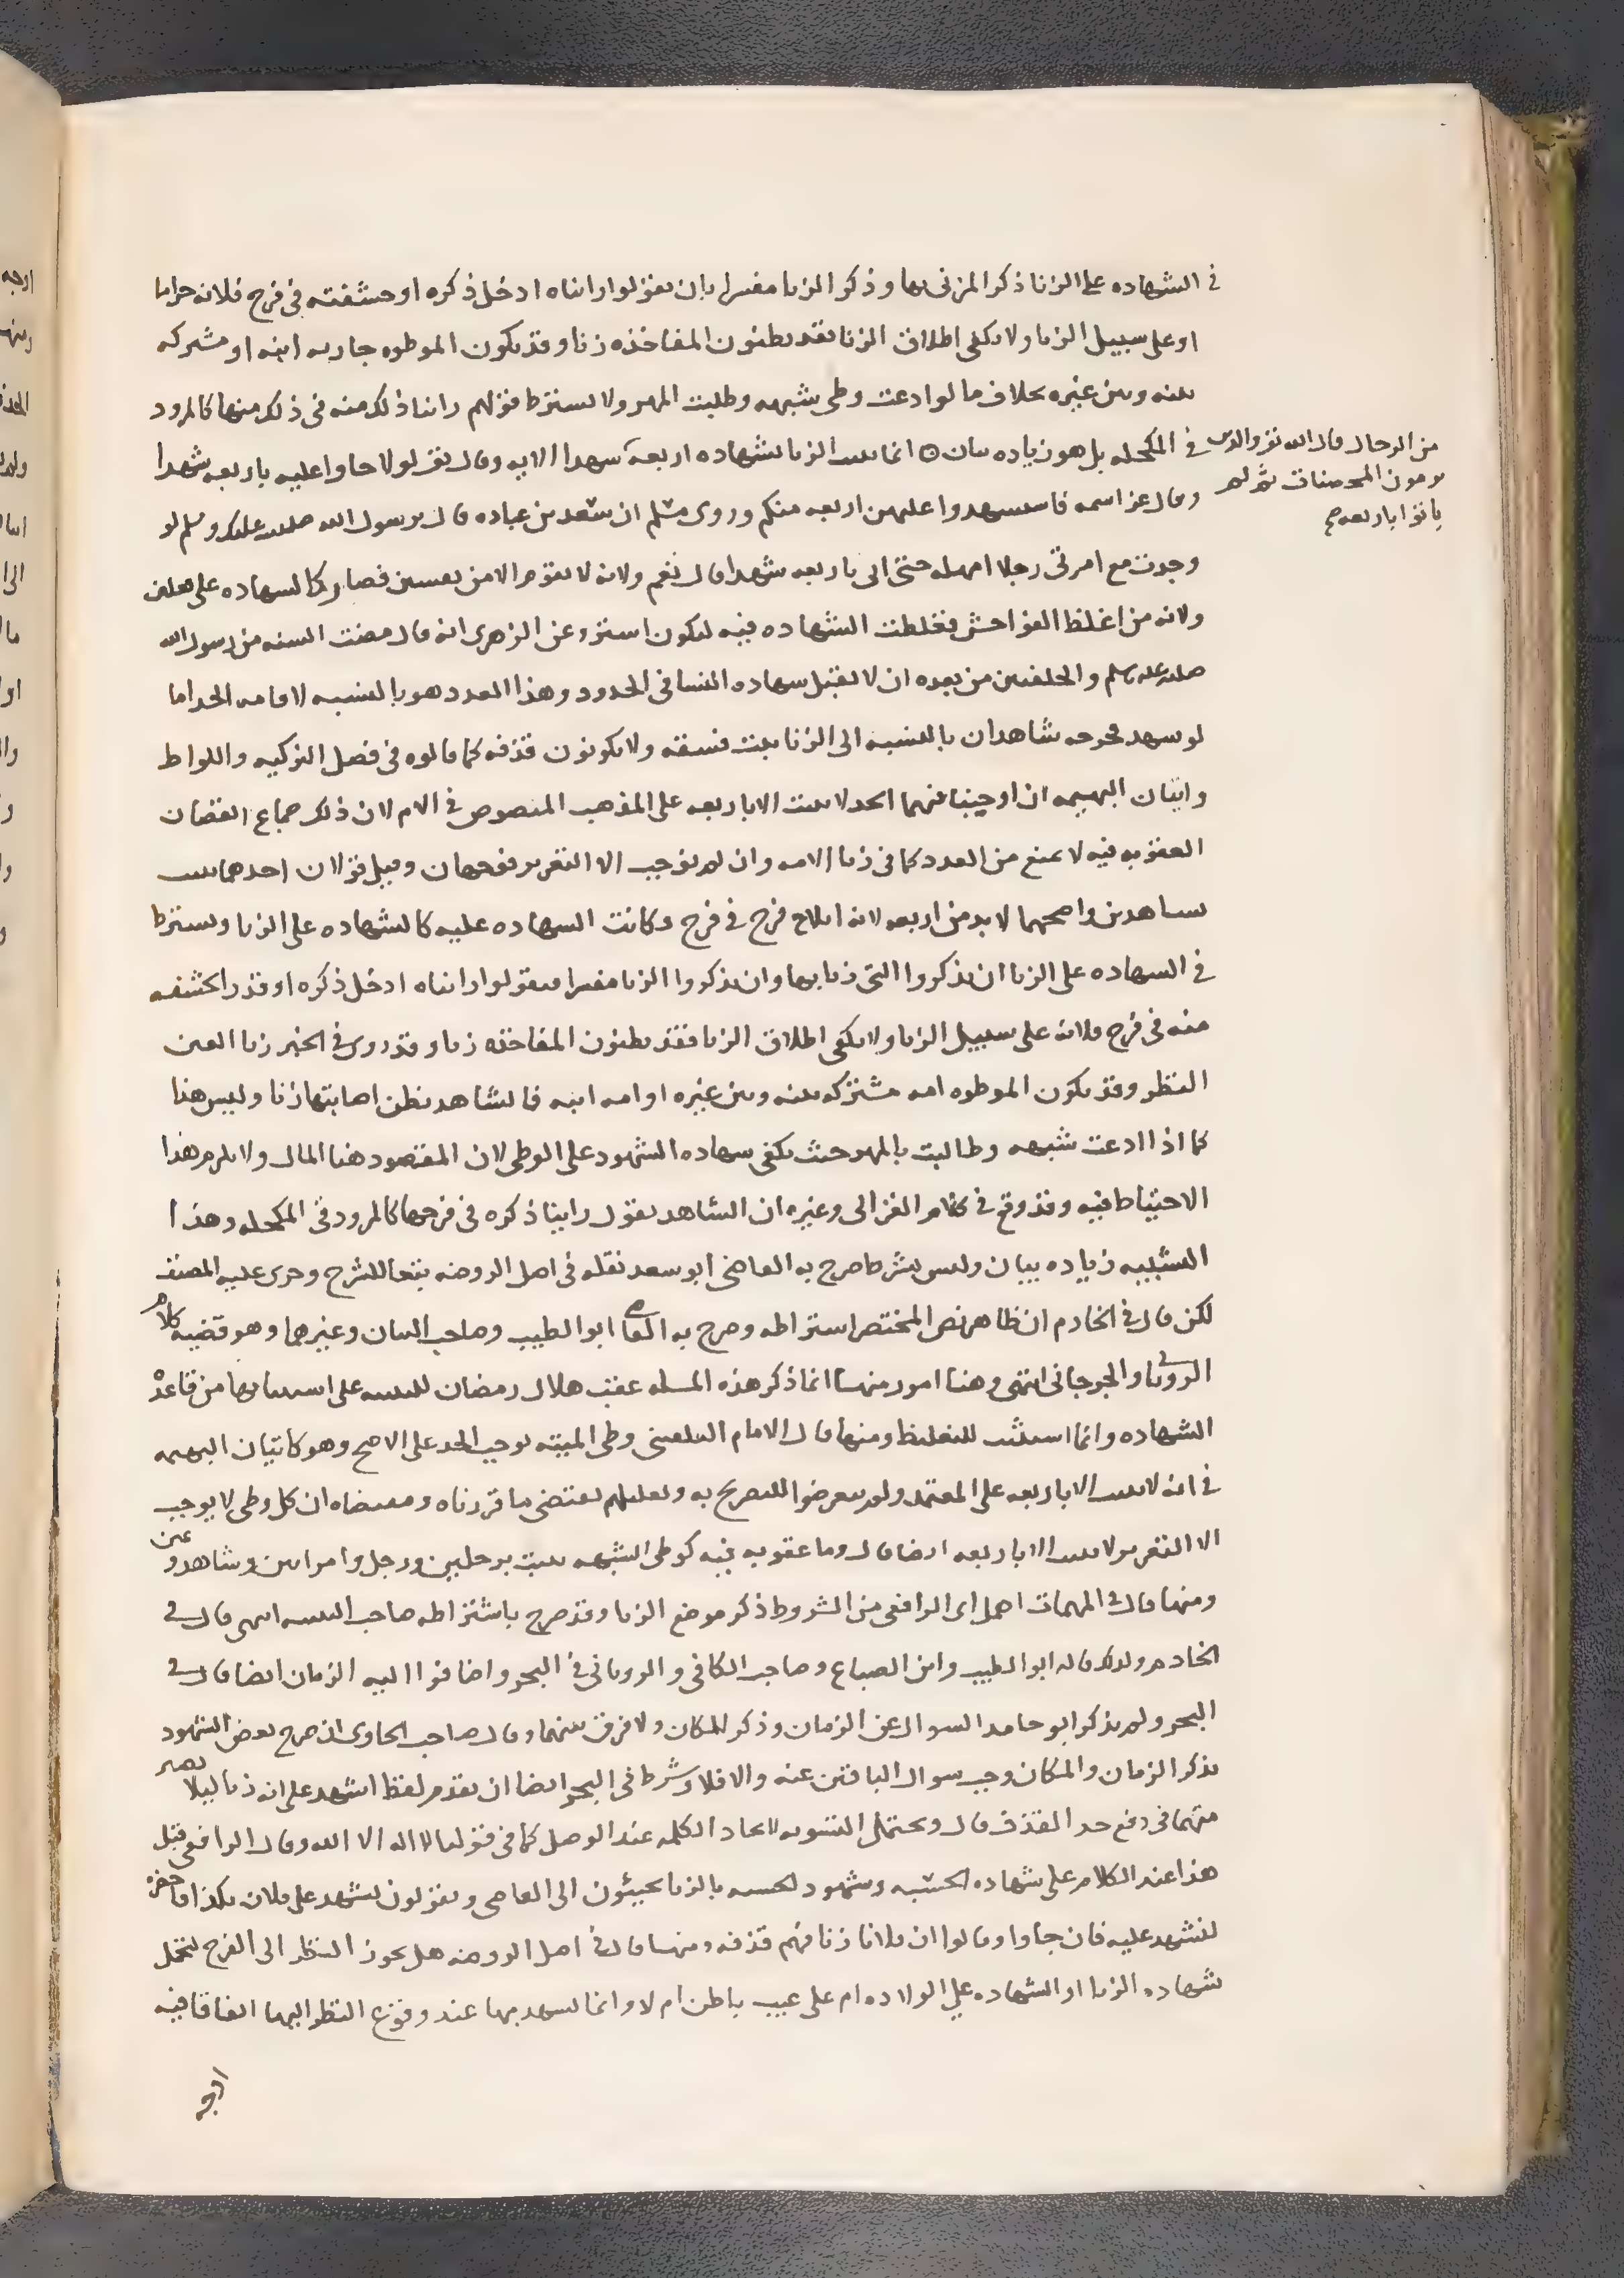 في الشهاده على الزنا ذكر المزني بها وذكر الزنا مفسرا بان يقولوا رايناه ادخل ذكره او حشفته في فرج فلانه حراما
او على سبيل الزنا ولا يكفي اطلاق الزنا فقد يظنون المفاخذه زنا وقد يكون الموطوه جاريه ابنه او مشتركه
بينه وبين غيره بخلاف ما لو ادعت وطي شبهه وطلبت المهر ولا يشترط قولهم راينا ذلك منه في ذلك منها كالمرود
في المكحله بل هو زياده بيان ٥ انما يثبت الزنا بشهاده اربعة شهدا الايه وقال تعالى لولا جاوا عليه باربعه شهدا
من الرجال قال الله تعالى والذين
يرمون المحصنات ثم لم
ياتوا باربعه صح
وقال عز اسمه فاستشهدوا عليهن اربعه منكم وروى مسلم ان سعد بن عباده قال يرسول الله صلى الله عليك وسلم لو
وجدت مع امرتي رجلا امهله حتى اتى باربعه شهدا قال نعم ولانه لا يقوم الا من نفسين فصار كالشهاده على فعلين
ولانه من اغلظ الفواحش فغلظت الشهاده فيه ليكون استر وعن الزهري انه قال مضت السنه من رسول الله
صلى الله عليه وسلم والخلفتين من بعده ان لا تقبل شهاده النسا في الحدود وهذا العدد هو بالنسبه لاقامه الحد اما
لو شهد بجرحه شاهدان بالنسبه الى الزنا يثبت فسقه ولا يكونون قذفه كما قالوه في فصل التزكيه واللواط
واتيان البهيمه ان اوجبنا فيهما الحد لا يثبت الا باربعه على المذهب المنصوص في الام لان ذلك جماع ونقصان
العقوبه فيه لا يمنع من العدد كما في زنا الامه وان لم نوجب الا التعزير فوجهان وقيل قولان احدهما يثبت
بشاهدين واصحهما لا بد من اربعه لانه ايلاج فرج في فرج وكانت الشهاده عليه كالشهاده على الزنا ويشترط
في الشهاده على الزنا ان يذكروا التي زنا بها وان يذكروا الزنا مفسرا فيقولوا راينناه ادخل ذكره او قدر الحشفه
منه في فرج فلانه على سبيل الزنا ولا يكفي اطلاق الزنا فقد يظنون المفاخذه زنا وقد روى في الخبر زنا العين
النظر وقد يكون الموطوه امه مشتركه بينه وبين غيره او امه ابنه فالشاهد يظن اصابتها زنا وليس هذا
كما اذا ادعت شبهه وطالبت بالمهر حيث يكفي شهاده الشهود على الوطي لان المقصود هنا المال ولا يلزم هذا
الاحتياط فيه وقد وقع في كلام الغزالي وغيره ان الشاهد يقول راينا ذكره في فرجها كالمرود في المكحله وهذا
التشبيه زياده بيان وليس بشرط صرح به القاضي ابو سعد نقله في اصل الروضه تبعا للشرح وجرى عليه المصنف
لكن قال في الخادم ان ظاهر نص المختصر اشتراطه وصرح به القاضي ابو الطيب وصاحب البيان وغيرهما وهو قضيه كلام
الروياني والجرجاني انتهى وهنا امور منها انما ذكر هذه المسله عقب هلال رمضان للتنبيه على استثنائها من قاعدة
الشهاده وانما استثنيت للتغليظ ومنها قال الامام البلقيني وطي الميته لا يوجب الحد على الاصح وهو كاتيان البهيمه
في انه لا يثبت الا باربعه على المعتمد ولم يتعرضوا للتصريح به وتعليلهم يقتضي ما قررناه ومقتضاه ان كل وطي لا يوجب
الا التعزير لا يثبت الا باربعه ايضا قال وما عقوبه فيه كوطي الشبهه يثبت برجلين ورجل وامراتين وشاهد و عين
ومنها قال في المهمات اهمل اى الرافعي من الشروط ذكر موضع الزنا وقد صرح باشتراطه صاحب التنبيه انتهى قال في
الخادم ولذلك قاله ابو الطيب وابن الصباغ وصاحب الكافي والروياني في البحر واضافوا اليه الزمان ايضا قال في
البحر ولم يذكر ابو حامد السوال عن الزمان وذكر المكان ولا فرق بينهما وقال صاحب الحاوى ان صرح بعض الشهود
بذكر الزمان والمكان وجب سوال الباقين عنه والا فلا وشرط في البحر ايضا ان يقدم لفظ اشهد على انه زنا ليلا يصير
متهما في دفع حد القذف قال ويحتمل التسويه لاتحاد الكلمه عند الوصل كما في قولنا لا اله الا الله وقال الرافعي قبل
هذا عند الكلام على شهاده الحسبه وشهود الحسبه بالزنا يجيئون الى القاضي ويقولون نشهد على فلان بكذا فاحضره
لنشهد عليه فان جاوا وقالوا ان فلانا زنا فهم قذفه ومنها قال في اصل الروضه هل يجوز النظر الى الفرج لتحمل
شهاده الزنا او الشهاده على الولاده ام على عيب باطن ام لا وانما يشهد بها عند وقوع النظر اليها اتفاقا فيه
اوجه